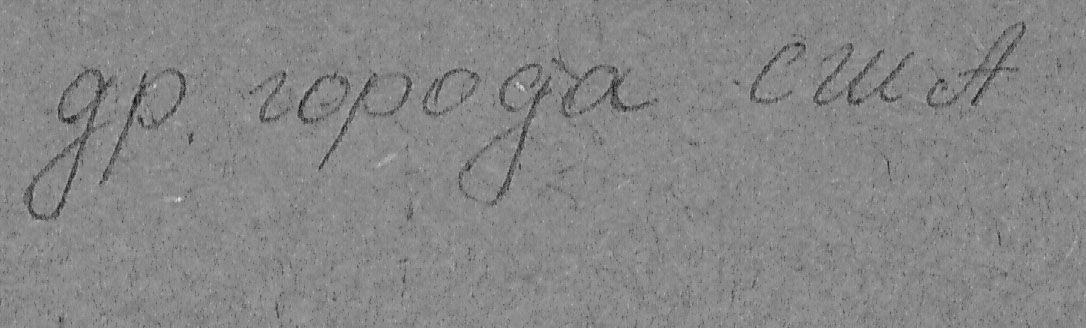 др. города США